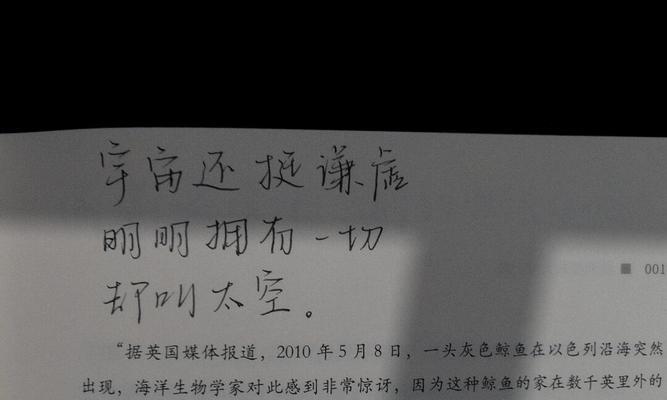 宇宙还挺谦虚
明明拥有一切
却叫太空。
■ 001
“据英国媒体报道，2010 年 5 月 8 日，一头灰色鲸鱼在以色列沿海突然
出现，海洋生物学家对此感到非常惊讶，因为这种鲸鱼的家在数千英里外的